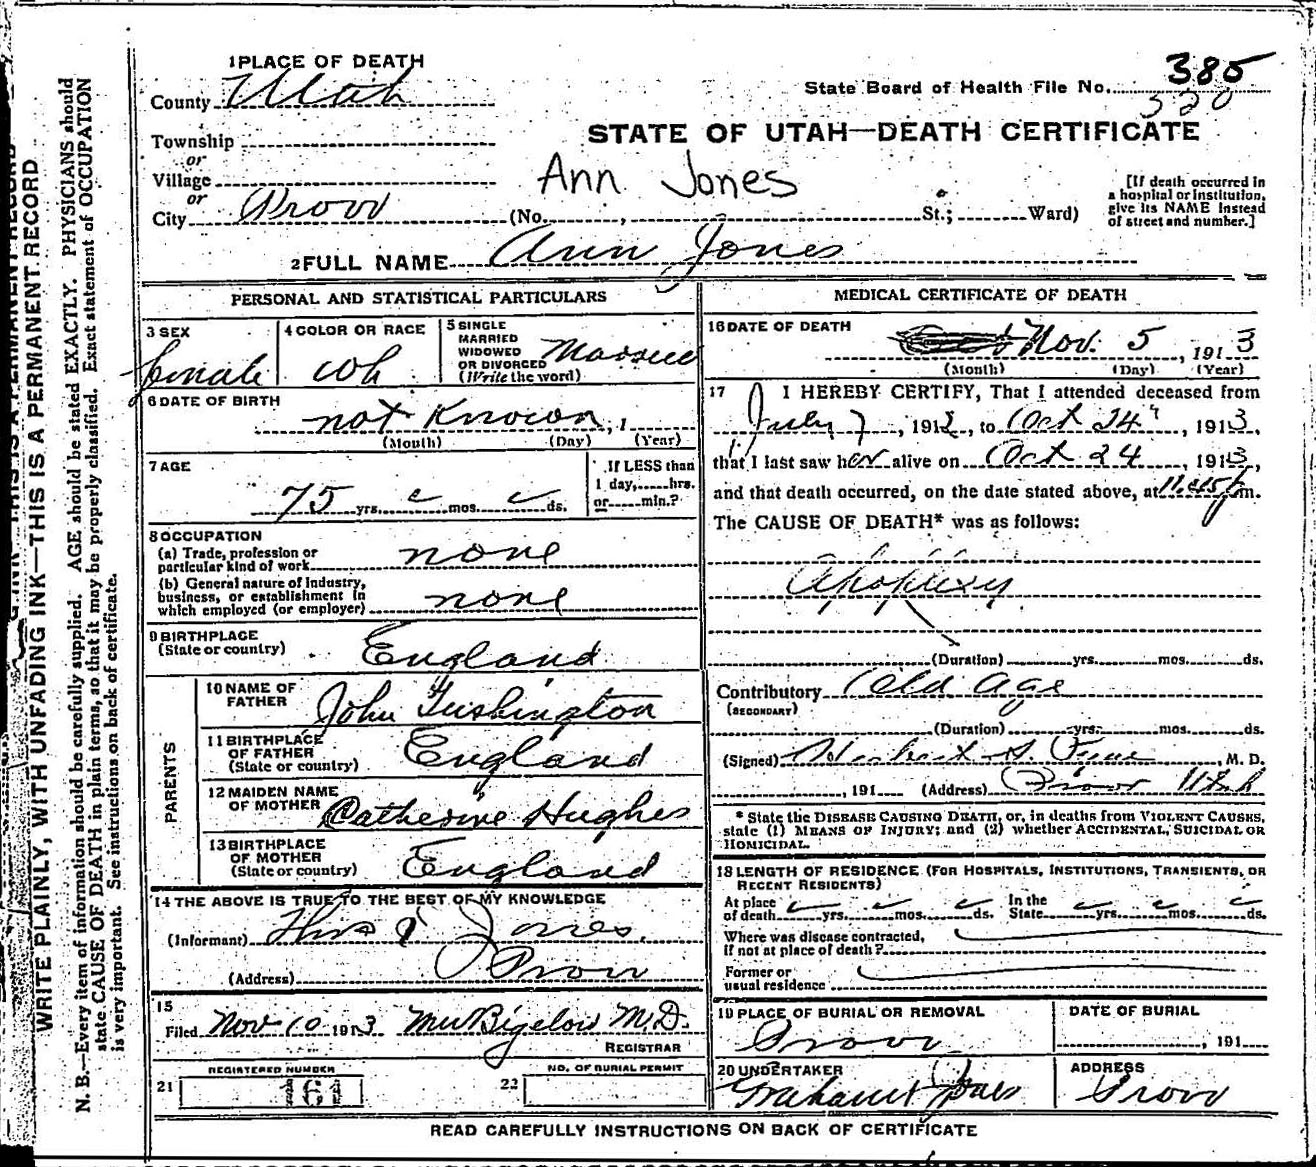 1 PLACE OF DEATH
County Utah
State Board of Health File No. 385
320
Township
or
Village
or
STATE OF UTAH—DEATH CERTIFICATE
Ann Jones
City Provo (No. , St.; Ward)
[If death occurred in
a hospital or institution,
give its NAME instead
of street and number.]
2 FULL NAME Ann Jones
PERSONAL AND STATISTICAL PARTICULARS
3 SEX
female
4 COLOR OR RACE
wh
5 SINGLE
MARRIED
WIDOWED
OR DIVORCED
(Write the word)
Married
6 DATE OF BIRTH
not Known, 1
(Month) (Day) (Year)
7 AGE
75 yrs. mos. ds.
If LESS than
1 day, hrs.
or min.?
8 OCCUPATION
(a) Trade, profession or
particular kind of work none
(b) General nature of Industry,
business, or establishment in
which employed (or employer) none
9 BIRTHPLACE
(State or country) England
PARENTS
10 NAME OF
FATHER John Tushington
11 BIRTHPLACE
OF FATHER
(State or country) England
12 MAIDEN NAME
OF MOTHER Catherine Hughes
13 BIRTHPLACE
OF MOTHER
(State or country) England
14 THE ABOVE IS TRUE TO THE BEST OF MY KNOWLEDGE
(Informant) Jones
(Address) Provo
15
Filed Nov 10 1913 Bigelow M.D.
REGISTRAR
REGISTERED NUMBER
21 161
NO. OF BURIAL PERMIT
22
MEDICAL CERTIFICATE OF DEATH
16 DATE OF DEATH
Nov. 5, 1913
(Month) (Day) (Year)
17 I HEREBY CERTIFY, That I attended deceased from
July 7, 1913, to Oct 24, 1913,
that I last saw her alive on Oct 24, 1913,
and that death occurred, on the date stated above, at 11.45 p m.
The CAUSE OF DEATH* was as follows:
Apoplexy
(Duration) yrs. mos. ds.
Contributory Old Age
(SECONDARY)
(Duration) yrs. mos. ds.
(Signed) Herbert S. Pyne, M. D.
, 191 (Address) Provo Utah
* State the DISEASE CAUSING DEATH, or, in deaths from VIOLENT CAUSES,
state (1) MEANS OF INJURY; and (2) whether ACCIDENTAL, SUICIDAL OR
HOMICIDAL.
18 LENGTH OF RESIDENCE (FOR HOSPITALS, INSTITUTIONS, TRANSIENTS, OR
RECENT RESIDENTS)
At place
of death yrs. mos. ds.
In the
State yrs. mos. ds.
Where was disease contracted,
If not at place of death?
Former or
usual residence
19 PLACE OF BURIAL OR REMOVAL
Provo
DATE OF BURIAL
, 191
20 UNDERTAKER
Jones
ADDRESS
Provo
READ CAREFULLY INSTRUCTIONS ON BACK OF CERTIFICATE
WRITE PLAINLY, WITH UNFADING INK—THIS IS A PERMANENT RECORD
N. B.—Every item of information should be carefully supplied. AGE should be stated EXACTLY. PHYSICIANS should
state CAUSE OF DEATH in plain terms, so that it may be properly classified. Exact statement of OCCUPATION
is very important. See instructions on back of certificate.